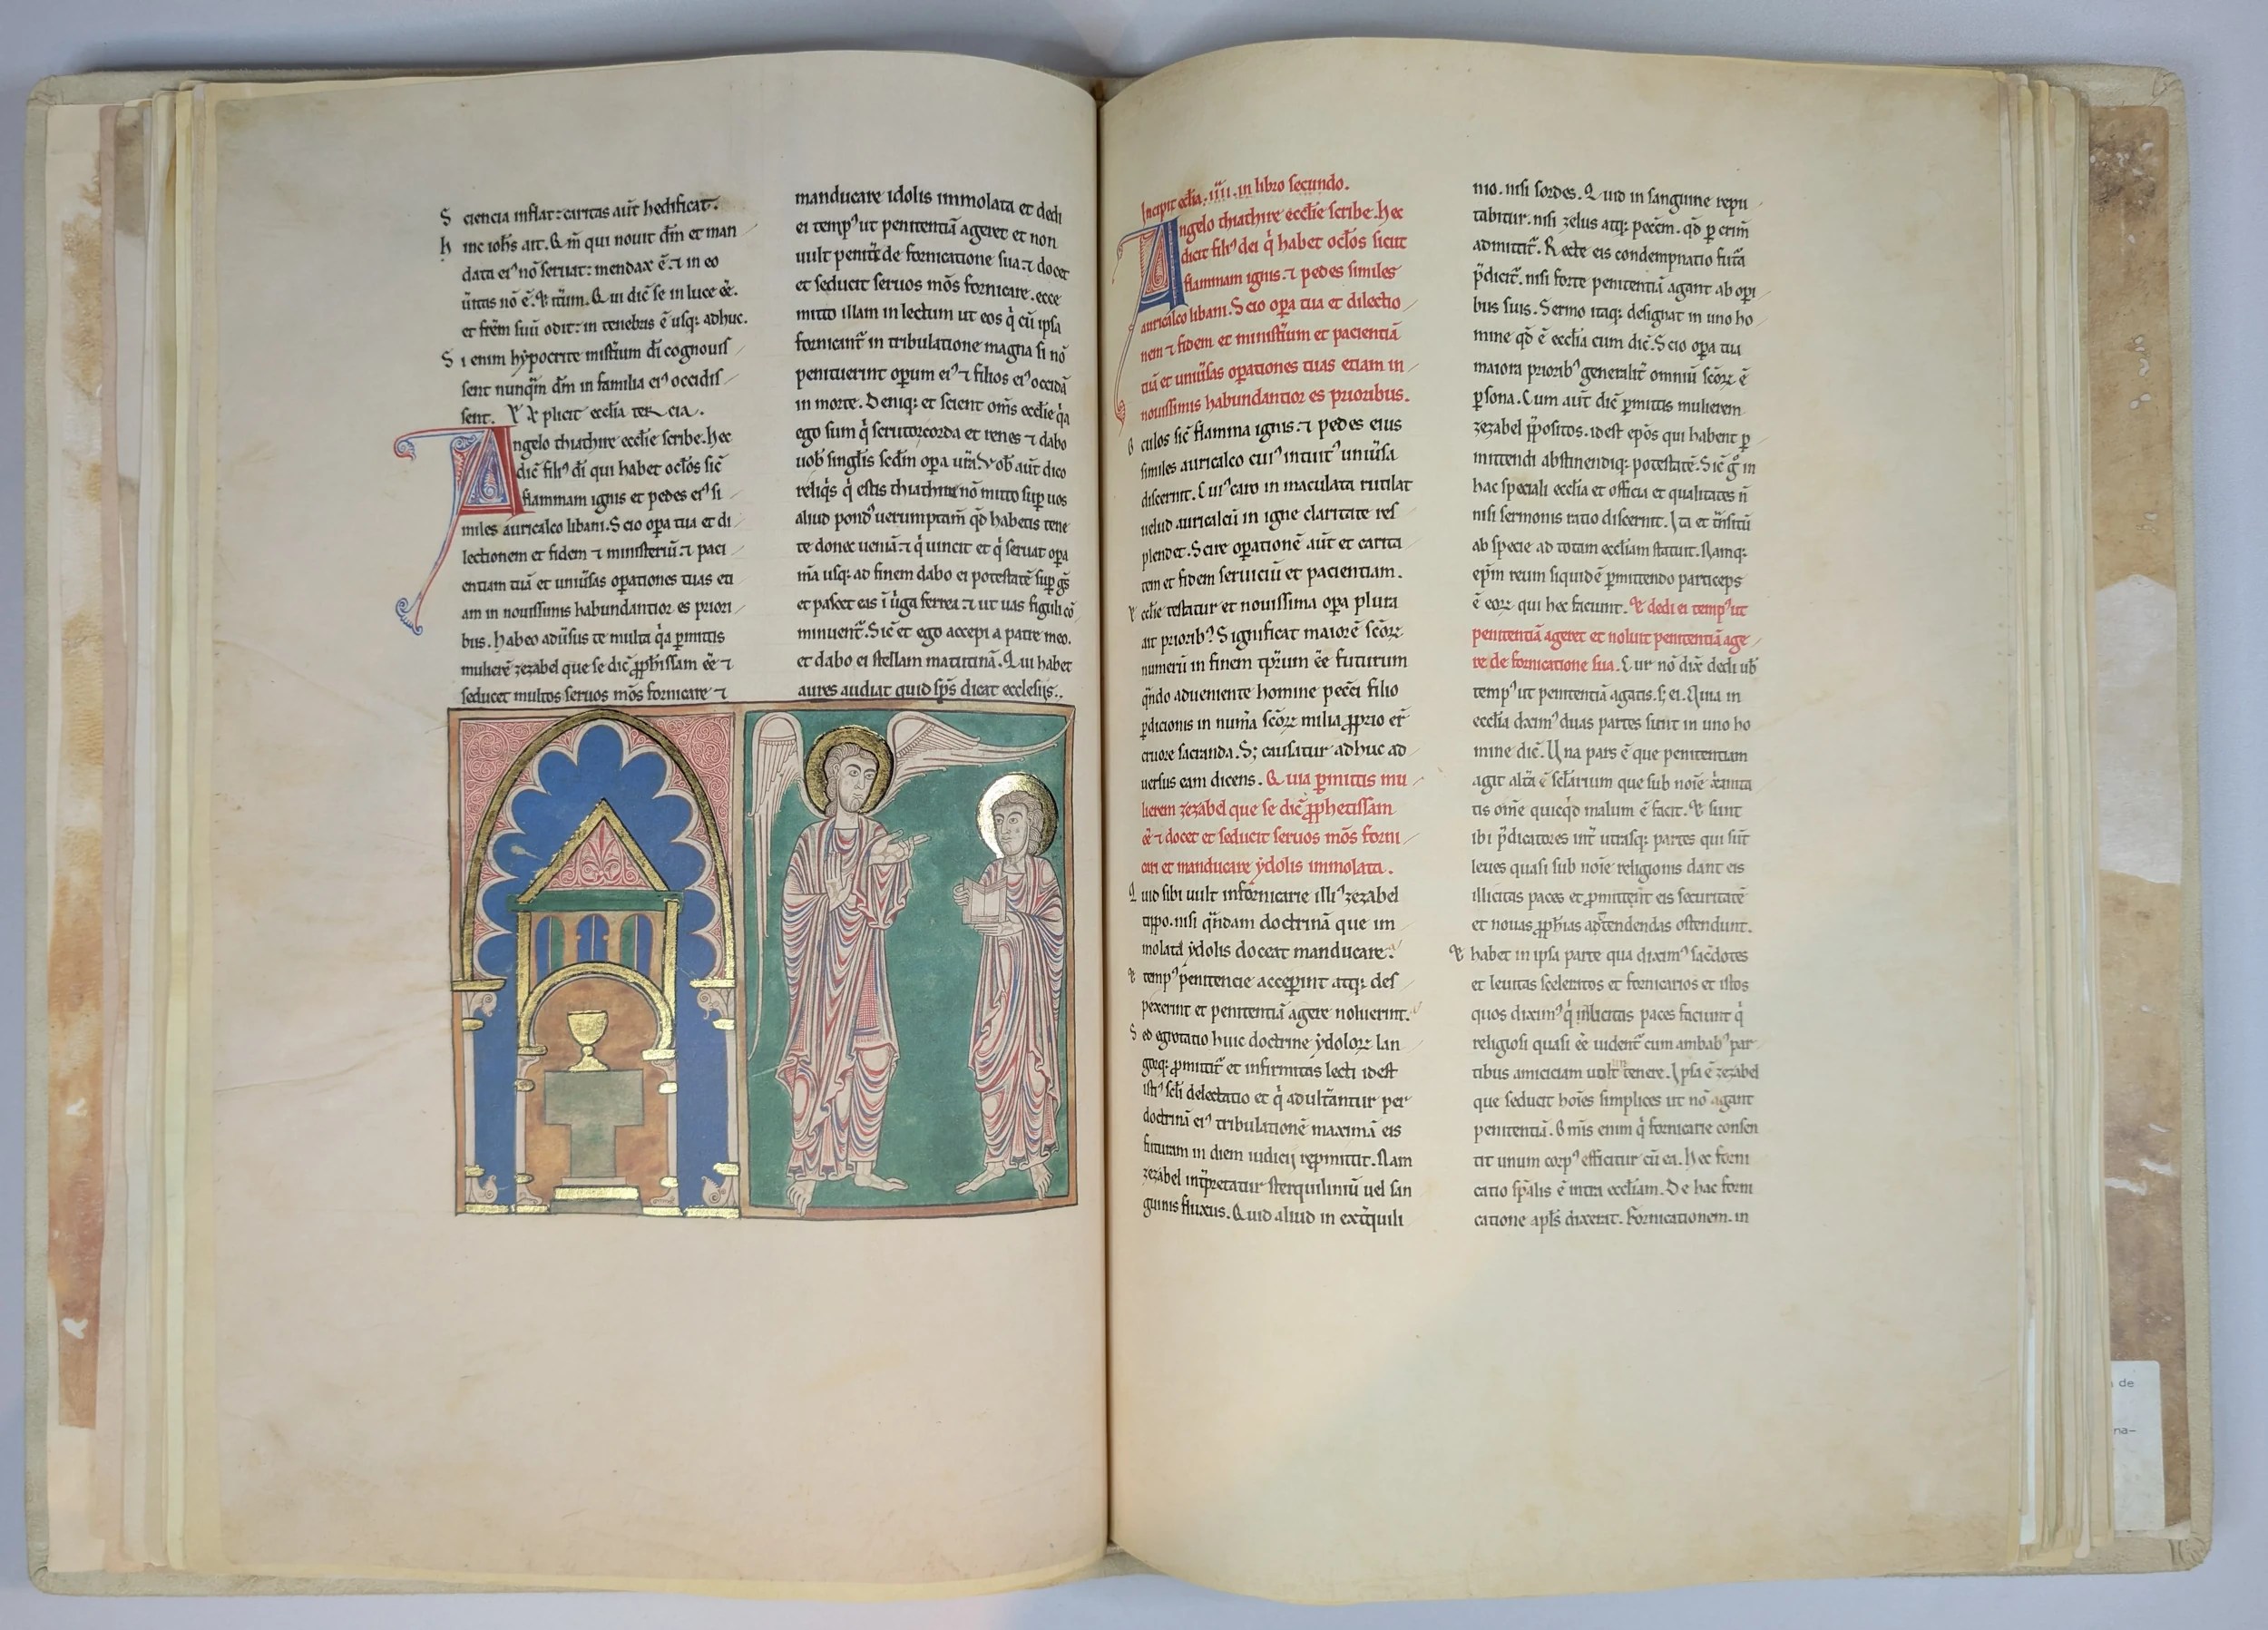 S ciencia inflat: caritas aut̄ hedificat.
h inc ioh̄s ait. Q m̄ qui nouit dm̄ et man
data ei⁹ nō seruat: mendax ē. ⁊ in eo
ūitas nō ē. & it̄um. Q ui dic̄ se in luce ēē.
et frēm suū odit: in tenebris ē usq; adhuc.
S i enim hẏpocrite mist̄ium dī cognouis
sent nunq̄m dm̄ in familia ei⁹ occidis
sent. E x plicit eccl̄ia tercia.
Angelo thiathire eccl̄ie scribe. hec
dic̄ fili⁹ dī qui habet ocl̄os sic̄
flammam ignis et pedes ei⁹ si
miles auricalco libani. S cio op̄a tua et di
lectionem et fidem ⁊ ministeriū. ⁊ paci
entiam tuā et uniūsas op̄ationes tuas eti
am in nouissimis habundantior es priori
bus. Habeo adūsus te multa q̄a p̄mittis
mulierē zezabel que se dic̄ p̄ph̄issam ēē ⁊
seducet multos seruos mōs fornicare ⁊
manducare idolis immolata et dedi
ei temp⁹ ut penitentiā ageret et non
uult penit̄e de fornicatione sua. ⁊ docet
et seducit seruos mōs fornicare. ecce
mitto illam in lectum ut eos q̄ cū ipsa
fornicant̄ in tribulatione magna si nō
penituerint op̄um ei⁹ ⁊ filios ei⁹ occidā
in morte. Deniq; et scient om̄s eccl̄ie q̄a
ego sum q̄ scrutor corda et renes ⁊ dabo
uob̄ singl̄is scd̄m op̄a ur̄a. Vob̄ aut̄ dico
reliq̄s q̄ estis thiathire nō mitto sup̄ uos
aliud pond⁹ uerumptam̄ qd̄ habetis tene
te donec ueniā. ⁊ q̄ uincit et q̄ seruat op̄a
m̄a usq; ad finem dabo ei potestatē sup̄ gs̄
et pascet eas ī ūga ferrea. ⁊ ut uas figuli cō
minuent̄. Sic̄ et ego accepi a patre meo.
et dabo ei stellam matutinā. Q ui habet
aures audiat quid sp̄s dicat ecclesijs.
Incipit eccl̄ia .iiii. in libro secundo.
Angelo thiathire eccl̄ie scribe. hec
dicit fili⁹ dei q̄ habet ocl̄os sicut
flammam ignis. ⁊ pedes similes
auricalco libani. S cio op̄a tua et dilectio
nem ⁊ fidem et minist̄ium et pacientiā
tuā et uniūsas op̄ationes tuas etiam in
nouissimis habundantior es prioribus.
O culos sic̄ flamma ignis. ⁊ pedes eius
similes auricalco cui⁹ intuit⁹ uniūsa
discernit. C ui⁹ caro in maculata rutilat
uelud auricalcū in igne claritate res
plendet. S cire op̄ationē aut̄ et carita
tem et fidem seruiciū et pacientiam.
E ccl̄ie testatur et nouissima op̄a plura
ait priorib⁹. S ignificat maiorē sc̄oꝝ
numerū in finem tp̄rum ēē futurum
q̄ndo adueniente homine pecc̄i filio
p̄dicionis in num̄a sc̄oꝝ milia p̄prio er̄
cruore sacranda. S; causatur adhuc ad
uersus eam dicens. Q uia p̄mittis mu
lierem zezabel que se dic̄ p̄phetissam
ēē ⁊ docet et seducit seruos mōs forni
cari et manducare ẏdolis immolata.
Q uid sibi uult infornicarie illi⁹ zezabel
tipo. nisi q̄ndam doctrinā que im
molata ẏdolis doceat manducare.
E temp⁹ penitencie acceperint atq; des
pexerint et penitentiā agere noluerint.
S ed egrotatio huic doctrine ẏdoloꝝ lan
goꝝq; p̄mittit̄ et infirmitas lecti idest
isti⁹ scl̄i delectatio et q̄ adult̄antur per
doctrinā ei⁹ tribulationē maximā eis
futuram in diem iudicij rep̄mittit. Nam
zezabel int̄pretatur sterquiliniū uel san
guinis fluxus. Q uid aliud in ext̄quili
nio. nisi sordes. Q uid in sanguine repu
tabitur. nisi zelus atq; pecc̄m. qd̄ p̄ crim̄
admittit̄. R ecte eis condempnatio futā
p̄dicit̄. nisi forte penitentiā agant ab op̄i
bus suis. Sermo itaq; designat in uno ho
mine qd̄ ē eccl̄ia cum dic̄. S cio op̄a tua
maiora priorib⁹ generalit̄ omniū sc̄oꝝ ē
p̄sona. C um aut̄ dic̄ p̄mittis mulierem
zezabel p̄positos. idest ep̄os qui habent p̄
mittendi abstinendiq; potestatē. Sic̄ ḡ in
hac speciali eccl̄ia et officia et qualitates n̄
nisi sermonis ratio discernit. Ita et t̄nsitū
ab specie ad totam eccl̄iam statuit. Namq;
ep̄m reum siquidē p̄mittendo particeps
ē eoꝝ qui hec faciunt. & dedi ei temp⁹ ut
penitentiā ageret et noluit penitentiā age
re de fornicatione sua. C ur nō dix̄ dedi ub̄
temp⁹ ut penitentiā agatis. s; ei. Quia in
eccl̄ia dixim⁹ duas partes sunt in uno ho
mine dic̄. Una pars ē que penitentiam
agit alt̄a ē scl̄arium que sub nōie x̄unita
tis om̄e quicq̄d malum ē facit. & sunt
ibi p̄dicatores int̄ utrasq; partes qui sūt
leues quasi sub nōie religionis dant eis
illicitas paces et p̄mittūt eis securitatē
et nouas p̄ph̄ias adtendendas ostendunt.
& habet in ipsa parte qua dixim⁹ sacdotes
et leuitas sceleratos et fornicarios et istos
quos dixim⁹ q̄ illicitas paces faciunt q̄
religiosi quasi ēē uident̄ cum ambab⁹ par
tibus amiciciam uolt tenere. Ipsa ē zezabel
que seducit hoīes simplices ut nō agant
penitentiā. O m̄is enim q̄ fornicarie consen
tit unum corp⁹ efficitur cū ea. hec forni
catio sp̄alis ē intra eccl̄iam. De hac forni
catione apl̄s dixerat. Fornicationem. in
de
na–